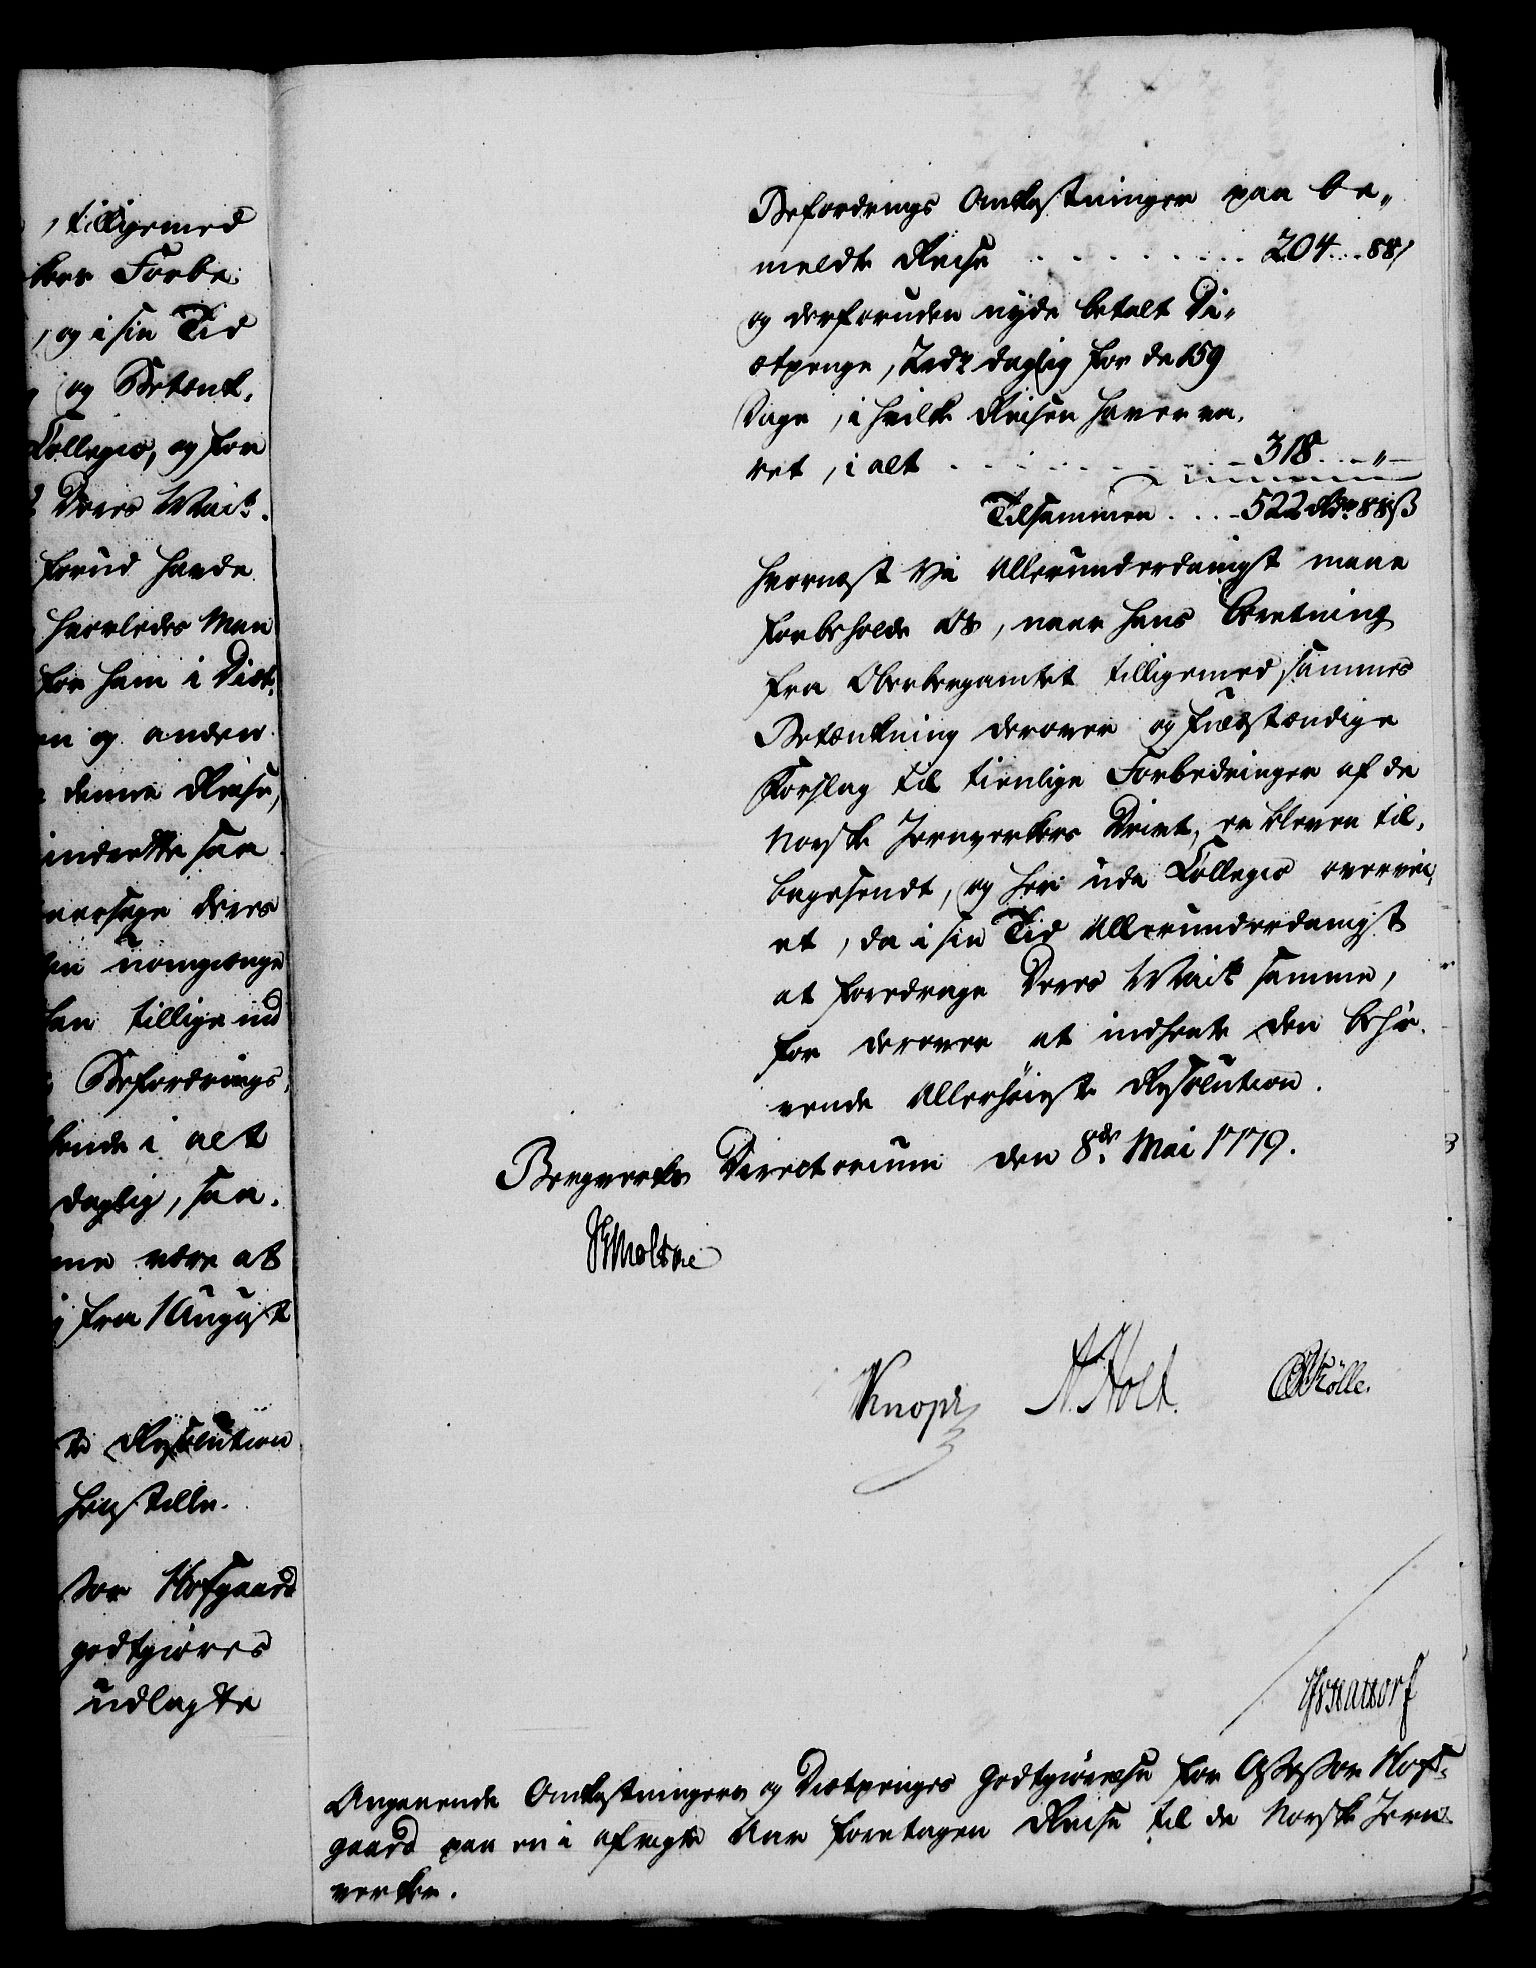 , tilligemed
kers Forbe
, og i sin Tid
og Betænk,
Collegio, og for
Deres Mait
forud havde
hvorledes Man
for ham i Diæt,
en og anden
denne Reise,
inderette saa
aarsage deres
en uomgiænge
han tillige ind
Befordrings,
lende i alt
daglig, saa,
me være at
fra 1 August
te Resolution
henstille.
sor Hofgaard
godtgiøres
udlagte
Befordrings Omkostninger paa be„
meldte Reise . . . . . . . . . 204 . . . 88/
og desforuden nyde betalt Di„
ætpenge, 2 rdr daglig for de 159
Dage, i hvilke Reisen haver va,
ret, i alt . . . . . . . . . 318 . . . „
Tilsammen . . . 522 Rdr 88 ß
hvornest Vi allerunderdanigst maae
forbeholde os, naar hans Beretning
fra Oberbergamtet tilligemed sammes
Betænkning derover og fuldstændige
Forslag til tienlige Forbedringer af de
Norske Jernverkers Drivt, er bleven til,
bagesendt, og her udi Collegio overvei,
et, da i sin Tid allerunderdanigst
at foredrage Deres Mait samme,
for derover at indhente den behø,
vende allerhøieste Resolution.
Bergverks Directorium den 8de Mai 1779.
Moltke
Knoph
A. Holt.
Kölle.
Angaaende Omkostningers og Diætpenges Godtgiørelse for Assessor Hof„
gaard paa en i afvigte Aar foretagen Reise til de Norske Jern„
verker.